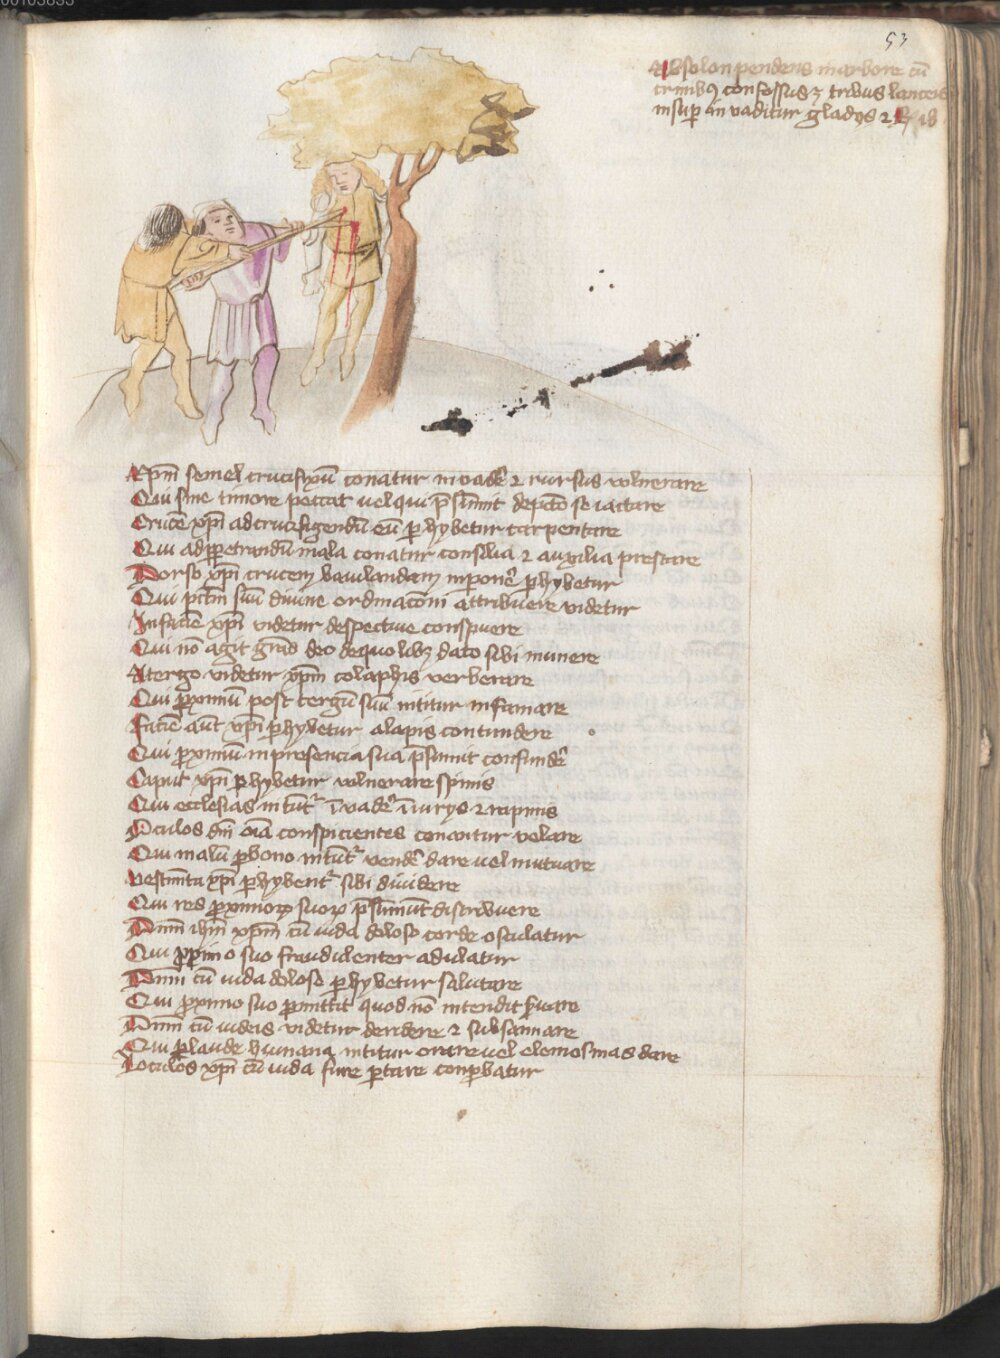 53
Absolon pendens in arbore cū
crinibꝫ confossus ꝫ tribus lanceis
insuꝑ inuaditur gladijs 2 Rͬ 18
Xp̄m semel crucifixū conatur inuadē ꝛ rursus vulnerare
Qui sine timore peccat uel qui p̄sūmit de pctō se iactare
Crucē xp̄i ad crucifigendū eū ꝑhybetur carpentare
Qui ad ꝑpetrandū mala conatur consilia ꝛ auxilia prestare
Dorso xp̄i crucem baiulandam inponē ꝑhybetur
Qui pctm̄ suū diuine ordinacōni attribuere videtur
In faciē xp̄i videtur despectiue conspuere
Qui nō agit grās deo de quolibꝫ dato sibi munere
A tergo videtur xp̄m colaphis verberare
Qui ꝓximū post tergū suū nititur infamare
Faciē aūt xp̄i ꝑhybetur alapis contundere
Qui ꝓximū in presencia sua p̄sumit confundē
Caput xp̄i ꝑhybetur vulnerare spinis
Qui ecclesias nitūtͬ īvadē īiurijs ꝛ rapinis
Oculos dm̄ oīa conspicientes conantur velare
Qui malū ꝓ bono nitūtͬ vendē dare uel mutuare
Vestimta xp̄i ꝑhybentͬ sibi diuidere
Qui res ꝓximoꝝ suoꝝ p̄sumūt distribuere
Dnm̄ ihm̄ xp̄m cū iuda doloso corde osculatur
Qui ꝓximo suo fraudulenter adulatur
Dnm̄ cū iuda dolose ꝑhybetur salutare
Qui ꝓximo suo ꝓmittit quod nō intendit ẜuare
Dnm̄ cū iudeis videtur deridere ꝛ subsannare
Qui ꝓ laude humana nititur orare uel elemosinas dare
Loculos xp̄i cū iuda fure portare conꝓbatur